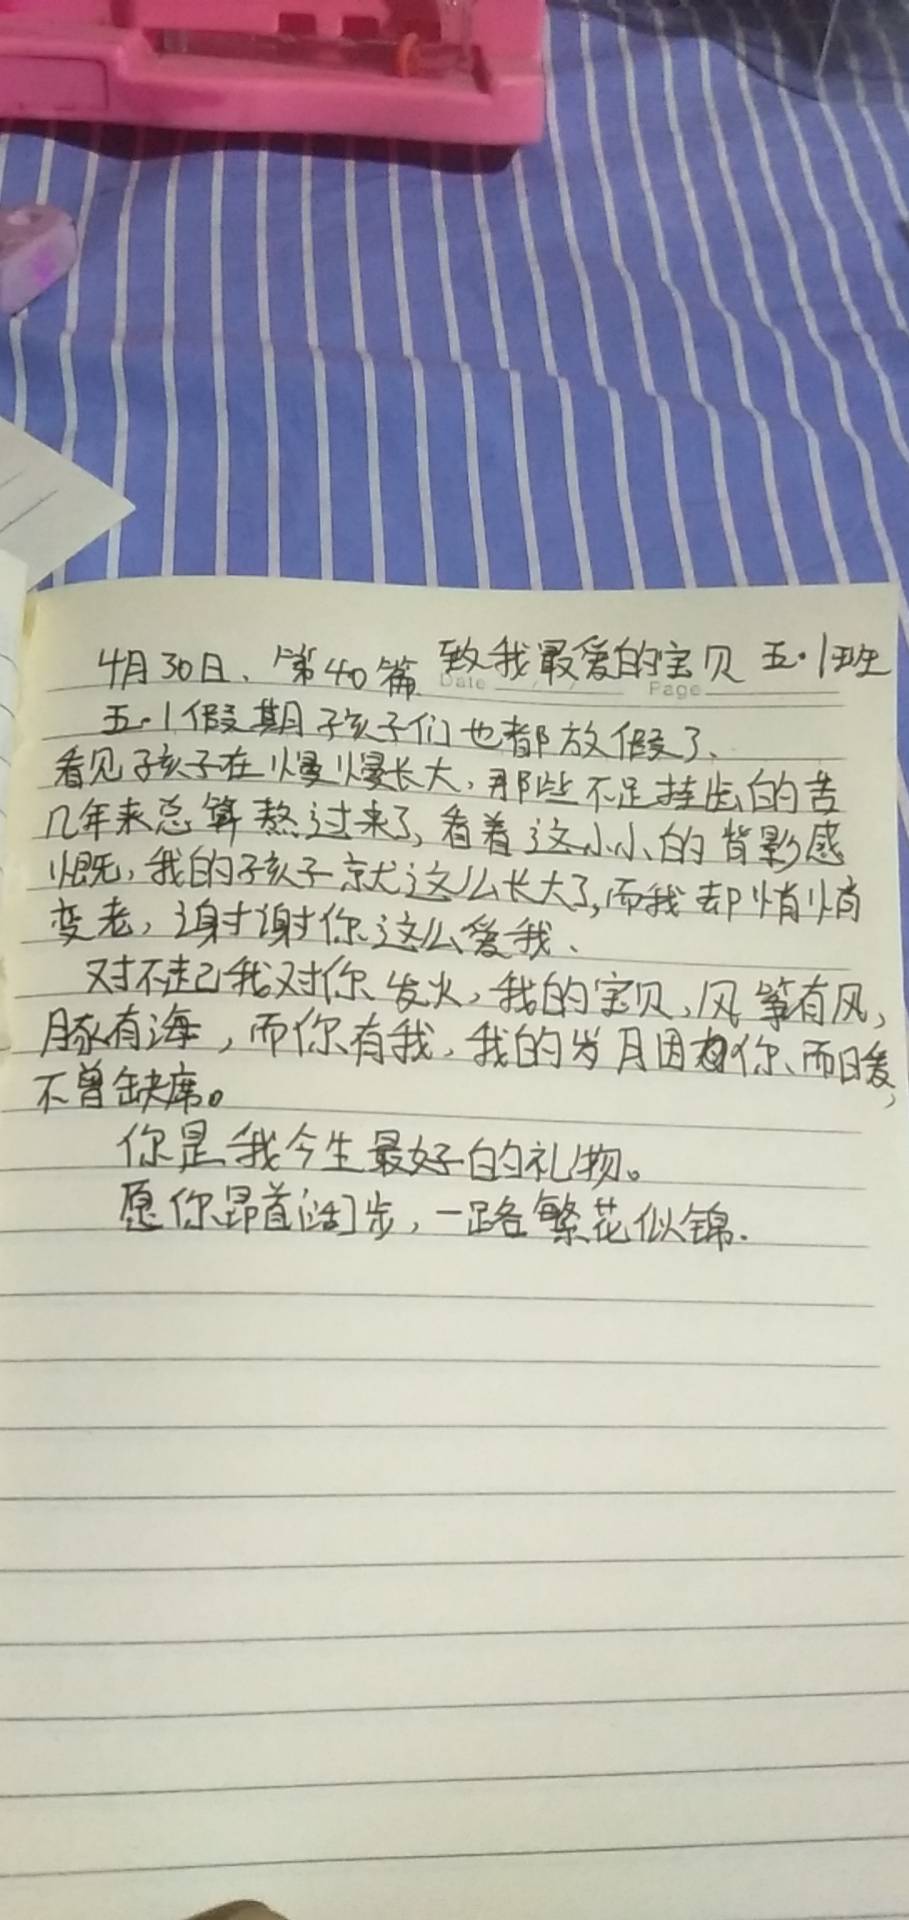 4月30日、第40篇 致我最爱的宝贝 五·1班
Date Page
五·1假期孩子们也都放假了、
看见孩子在慢慢长大，那些不足挂齿的苦
几年来总算熬过来了，看着这小小的背影感
慨，我的孩子就这么长大了，而我却悄悄
变老，谢谢你这么爱我、
对不起我对你发火，我的宝贝、风筝有风，
海豚有海，而你有我，我的岁月因你、而日暖，
不曾缺席。
你是我今生最好的礼物。
愿你昂首阔步，一路繁花似锦.